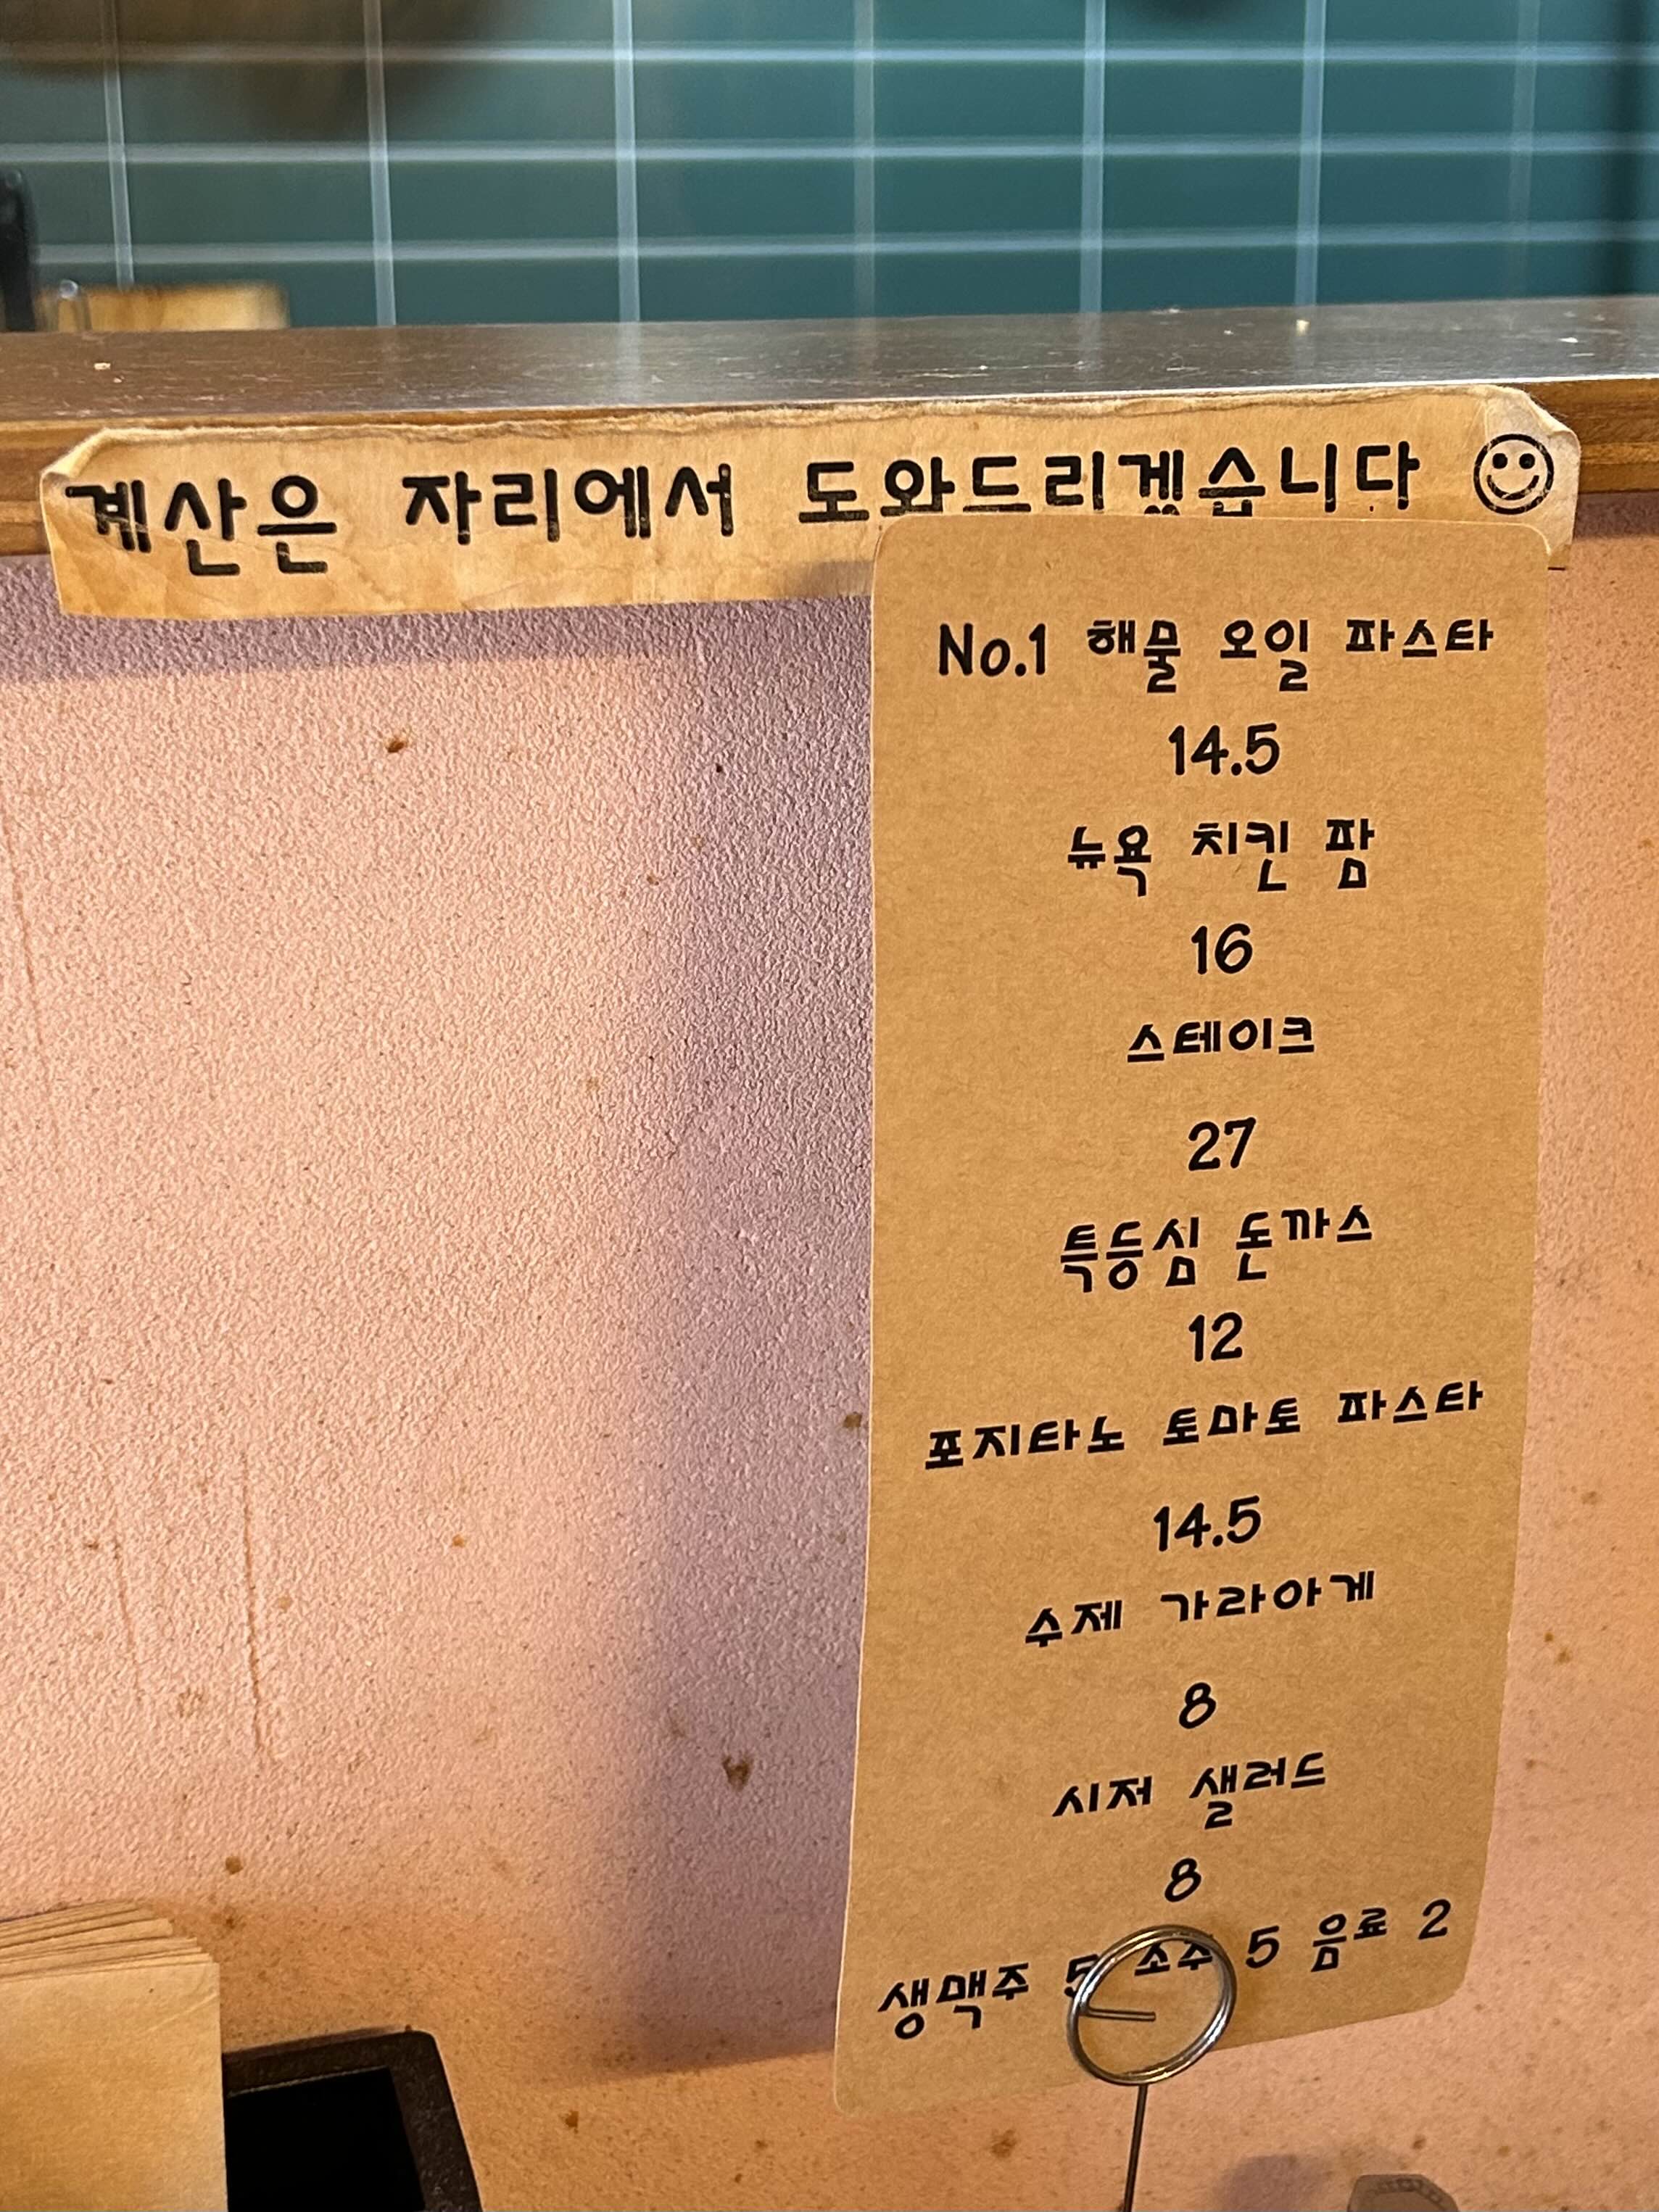 계산은 자리에서 도와드리겠습니다
No.1 해물 오일 파스타
14.5
뉴욕 치킨 팜
16
스테이크
27
특등심 돈까스
12
포지타노 토마토 파스타
14.5
수제 가라아게
8
시저 샐러드
8
생맥주 5 소주 5 음료 2